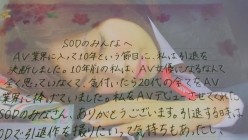 SODのみんなへ
AV業界に入って10年という節目に、私は引退を
決断しました。10年前の私は、AV女優になるなんて
全く思っていなくて、気付いたら20代の全てをAV
業界に捧げていました。私をAVデビューさせてくれた
SODのみなさん、ありがとうございます。引退する時は、
ODで引退作を撮りたいって気持ちもあったし、